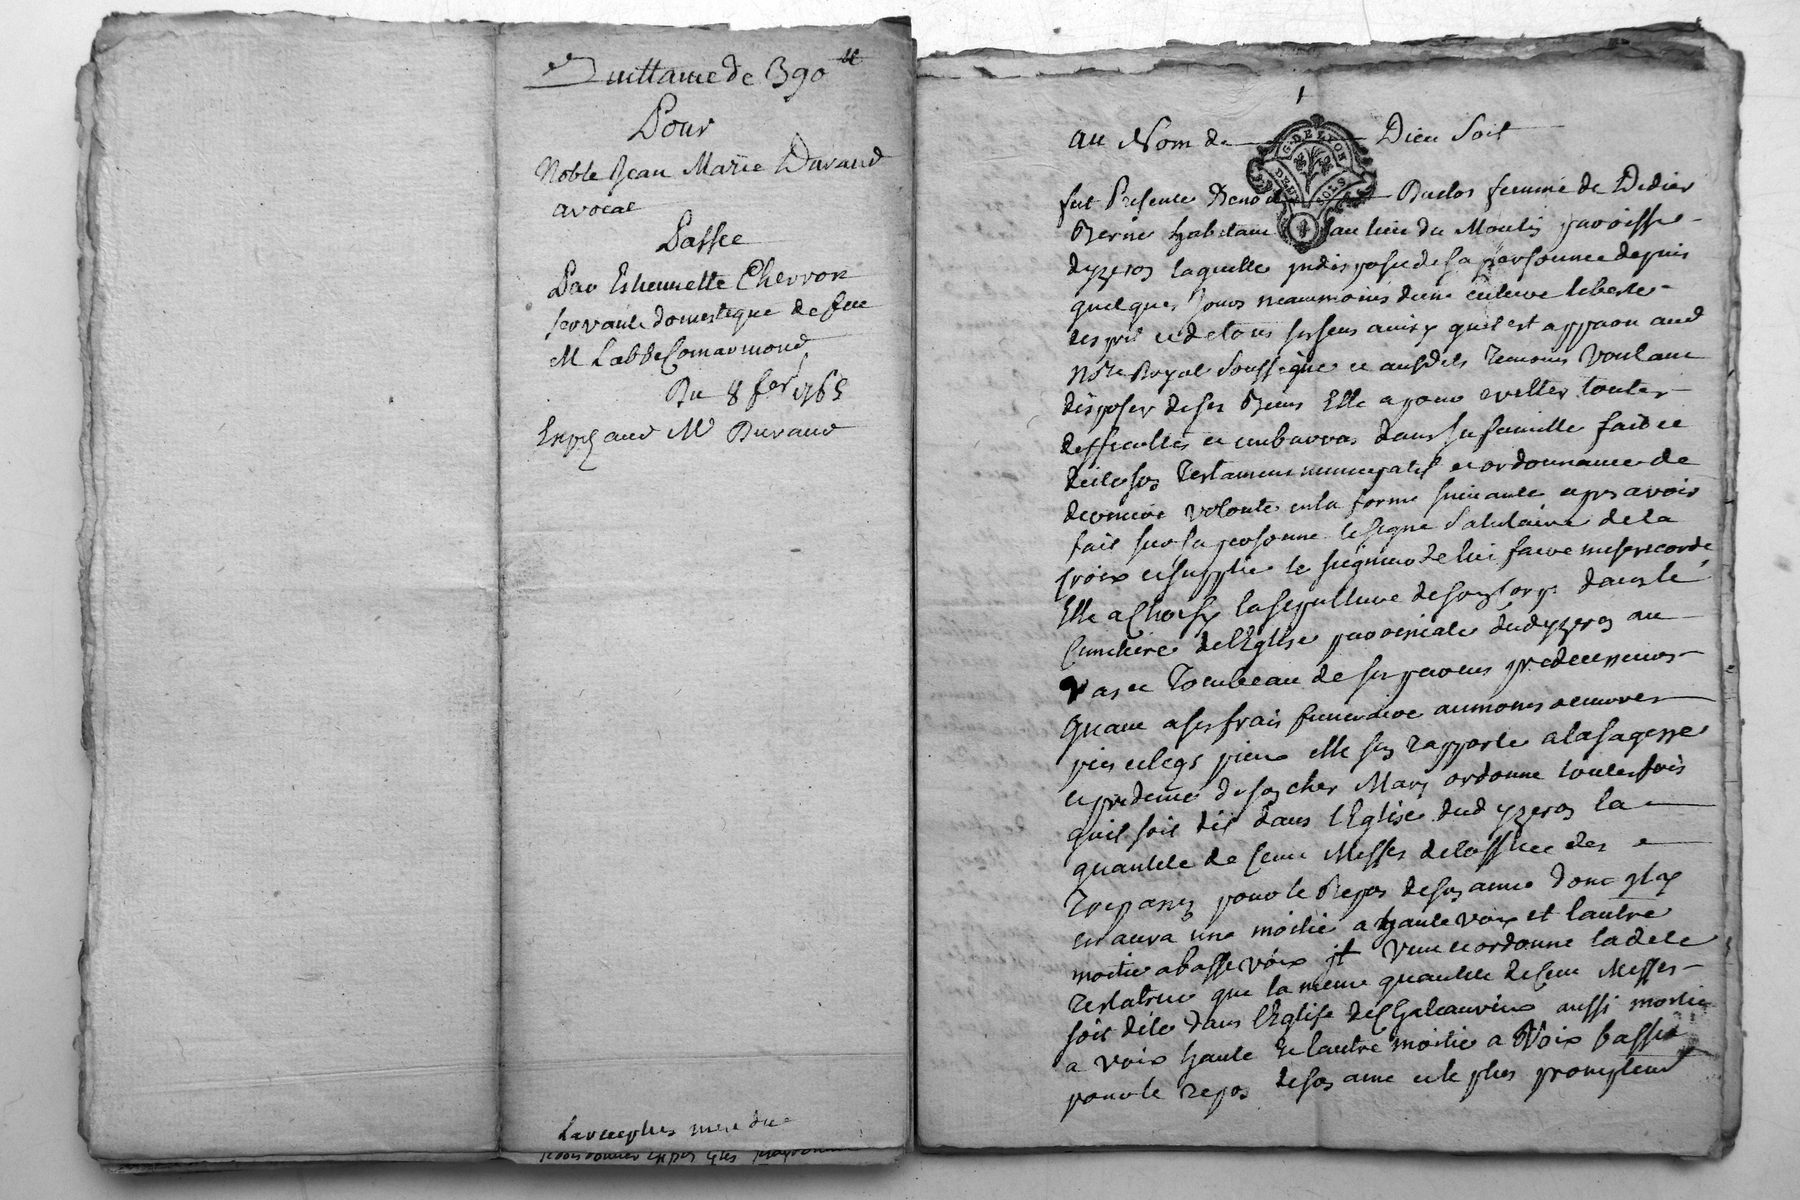 Quittance de 390 ₶
Pour
Noble Jean Marie Durand
avocat
Passee
Par Estiennette Chervon
servante domestique de feu
M Labbe Comarmond
Du 8 fer 1765
Exp aud Mr Durand
au Nom de Dieu Soit
G. DE LYON
DEUX SOLS
fut Presente Benoite Duclos femme de Didier
Berne habitant au lieu du Moulin paroisse
dyzeron laquelle indisposee de sa personne depuis
quelques jours neammoins dune entiere liberte
desprit et de tous ses sens ainsy quil est apparu aud
Nore Royal Soussigne et ausdits temoins Voulant
disposer de ses Biens Elle a pour eviter toutes
difficultes et embarras dans sa famille fait et
dicte son Testament nuncupatif et ordonnance de
derniere volonte en la forme suivante apres avoir
fait sur sa personne le signe Salutaire de la
Croix et supplie le seigneur de lui faire misericorde
Elle a Choisy la sepulture de son Corps dans le
Cimetiere de lEglise paroissiale dud yzeron au
Vas et Tombeau de ses parens predecesseurs
Quant a ses frais funeraire aumones oeuvres
pies et legs pieux elle sen rapporte a la sagesse
et prudence de son cher Mary ordonne toutesfois
quil soit dit dans lEglise dud yzeron la
quantite de Cent Messes de loffice des
Trepassez pour le Repos de son ame dont il y
en aura une moitie a haute voix et lautre
moitie a basse voix jt Veut et ordonne ladite
Testatrice que la meme quantite de Cent Messes
soit dite dans lEglise de Chateauvieux aussi moitie
a voix haute et lautre moitie a Voix basse
pour le repos de son ame et le plus promptement